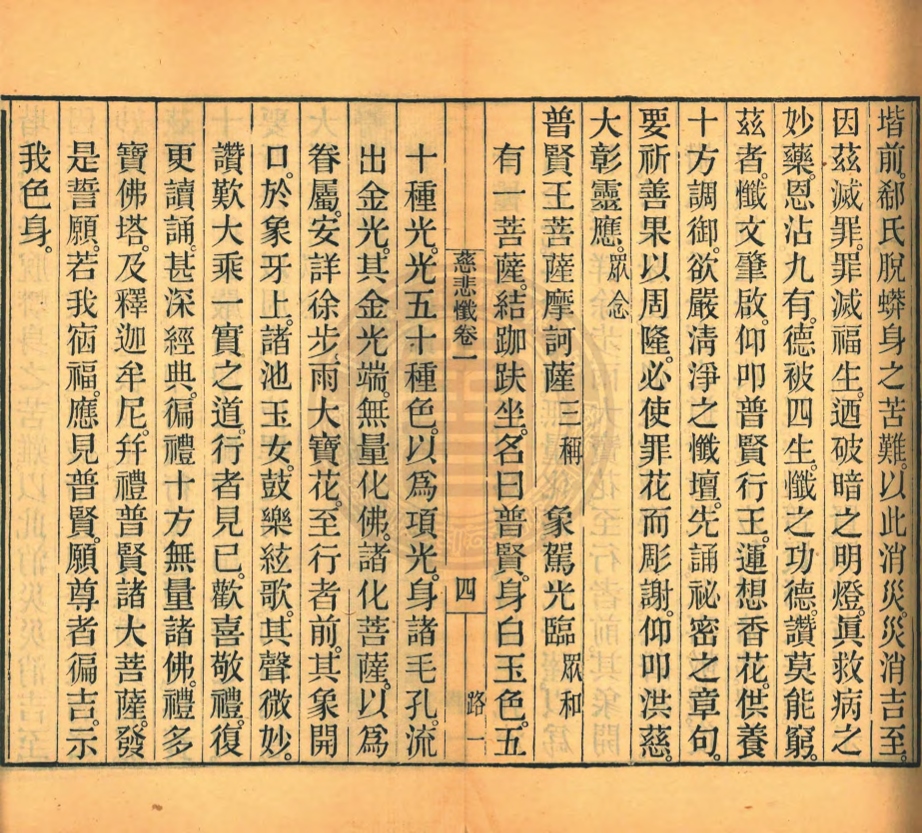 堦前。郗氏脫蟒身之苦難。以此消災。災消吉至。
因茲滅罪。罪滅福生。迺破暗之明燈。眞救病之
妙藥。恩沾九有。德被四生。懺之功德。讚莫能窮。
茲者。懺文肇啟。仰叩普賢行王。運想香花。供養
十方調御。欲嚴淸淨之懺壇。先誦祕密之章句。
要祈善果以周隆。必使罪花而彫謝。仰叩洪慈。
大彰靈應。眾念
普賢王菩薩摩訶薩 三稱 象駕光臨 眾和
有一菩薩。結跏趺坐。名曰普賢。身白玉色。五
慈悲懺卷一 四 路一
十種光。光五十種色。以爲項光。身諸毛孔。流
出金光。其金光端。無量化佛。諸化菩薩。以爲
眷屬。安詳徐步。雨大寶花。至行者前。其象開
口。於象牙上。諸池玉女。鼓樂絃歌。其聲微妙。
讚歎大乘一實之道。行者見已。歡喜敬禮。復
更讀誦。甚深經典。徧禮十方無量諸佛。禮多
寶佛塔。及釋迦牟尼。幷禮普賢諸大菩薩。發
是誓願。若我宿福。應見普賢。願尊者徧吉。示
我色身。